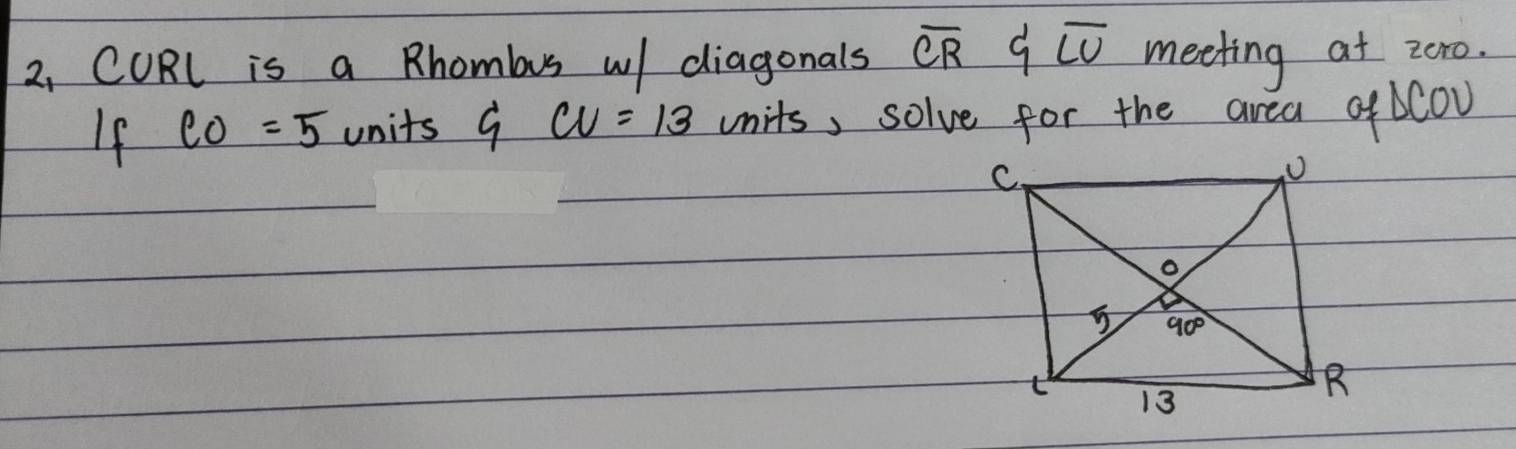 2, CURL is a Rhombus w/ diagonals CR & LU meeting at zero.
If CO = 5 units & CU = 13 units, solve for the area of ΔCOU
C U
O
5 90°
L R
13